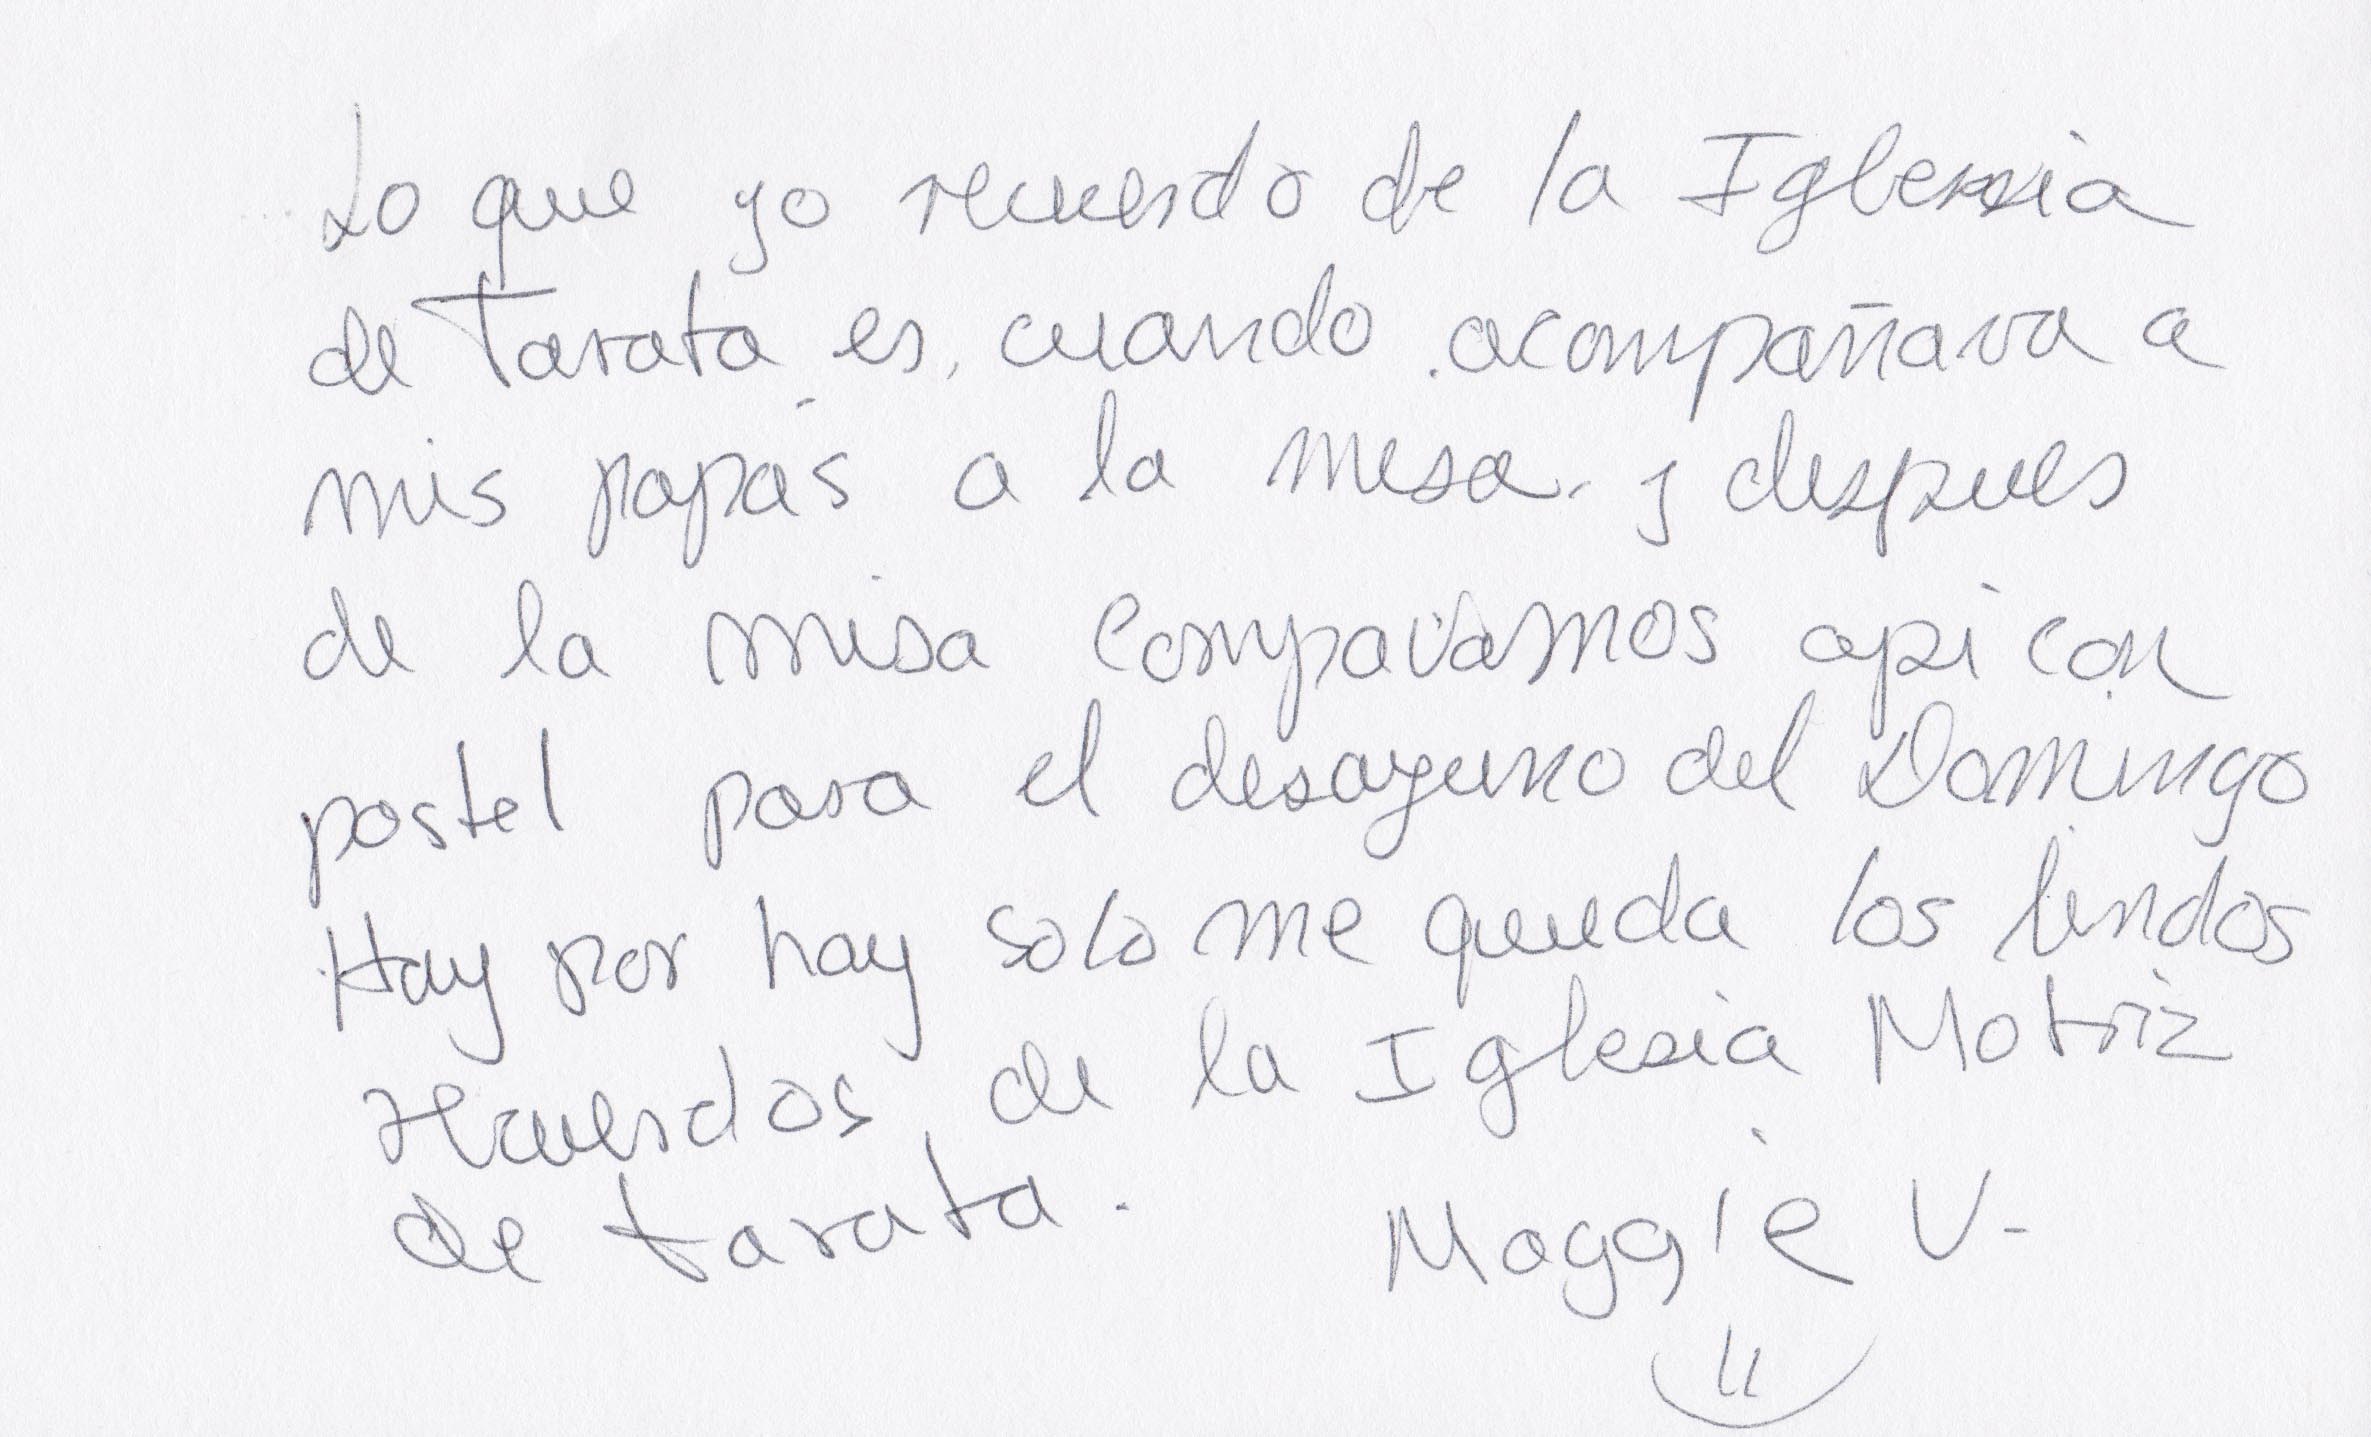 Lo que yo recuerdo de la Iglesia
de Tarata es, cuando acompañava a
mis papás a la mesa. y despues
de la misa compavamos api con
pastel para el desayuno del Domingo
Hay por hay solo me queda los lindos
recuerdos de la Iglesia Matriz
de tarata.
Maggie V.